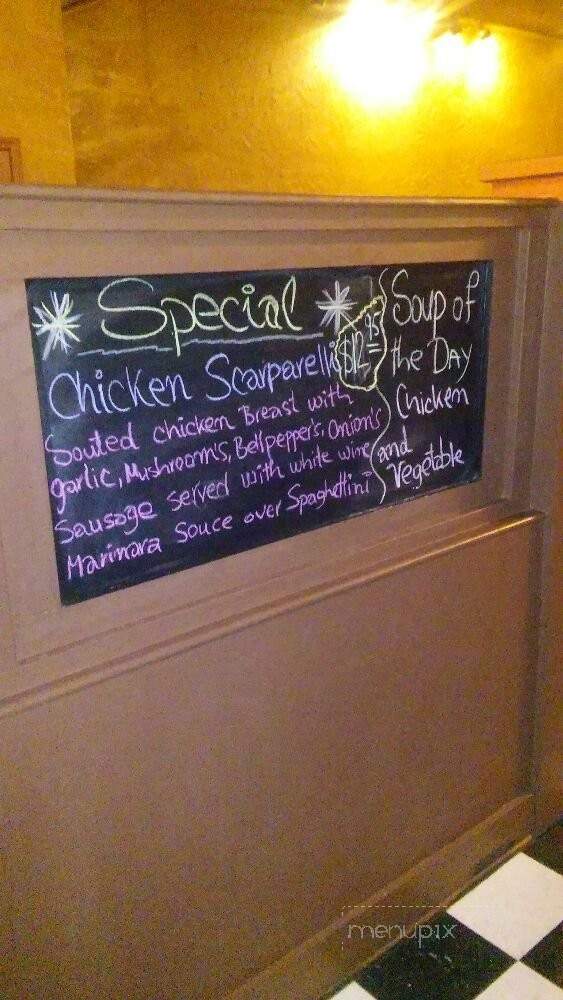 Special
Chicken Scarparelli
$12.95
Souted chicken Breast with
garlic, Mushroom's, Bellpepper's, Onion's
Sausage served with white wine
Marinara Souce over Spaghettini
Soup of
the Day
Chicken
and
Vegetable
menupix